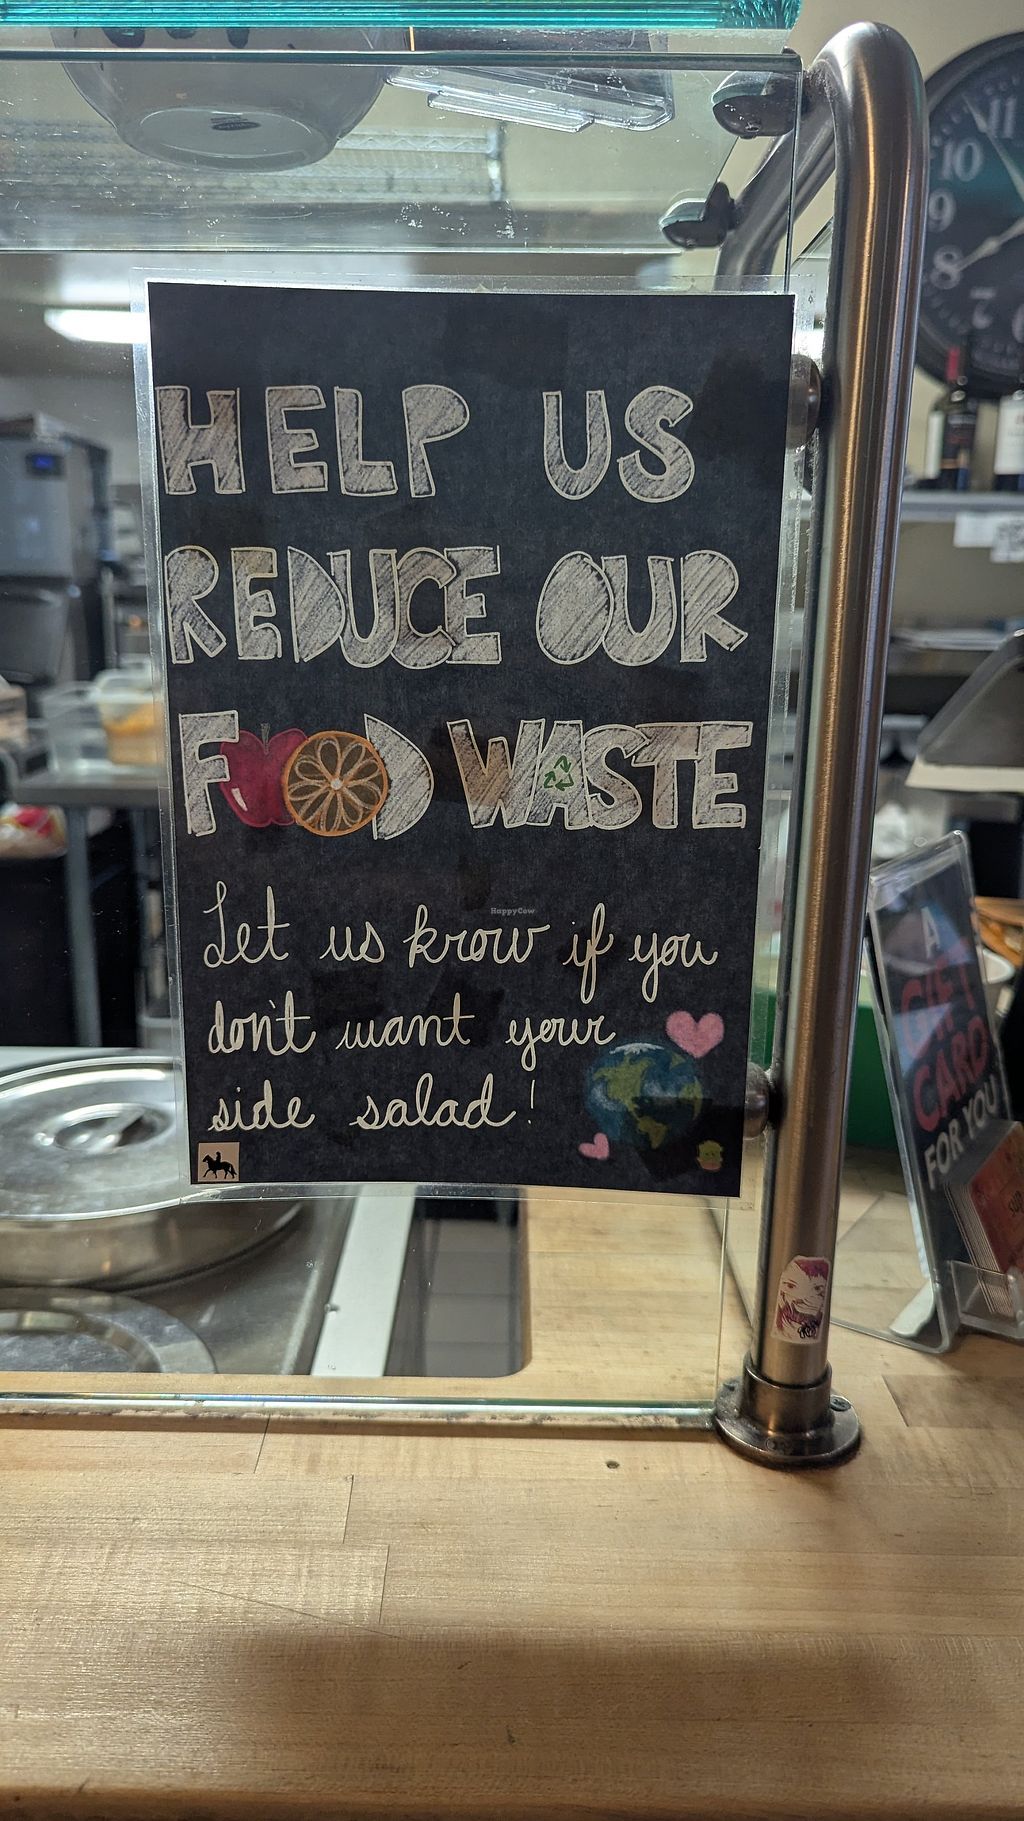 11
10
9
8
7
HELP US
REDUCE OUR
FOOD WASTE
HappyCow
Let us know if you
don't want your
side salad!
A
GIFT
CARD
FOR YOU